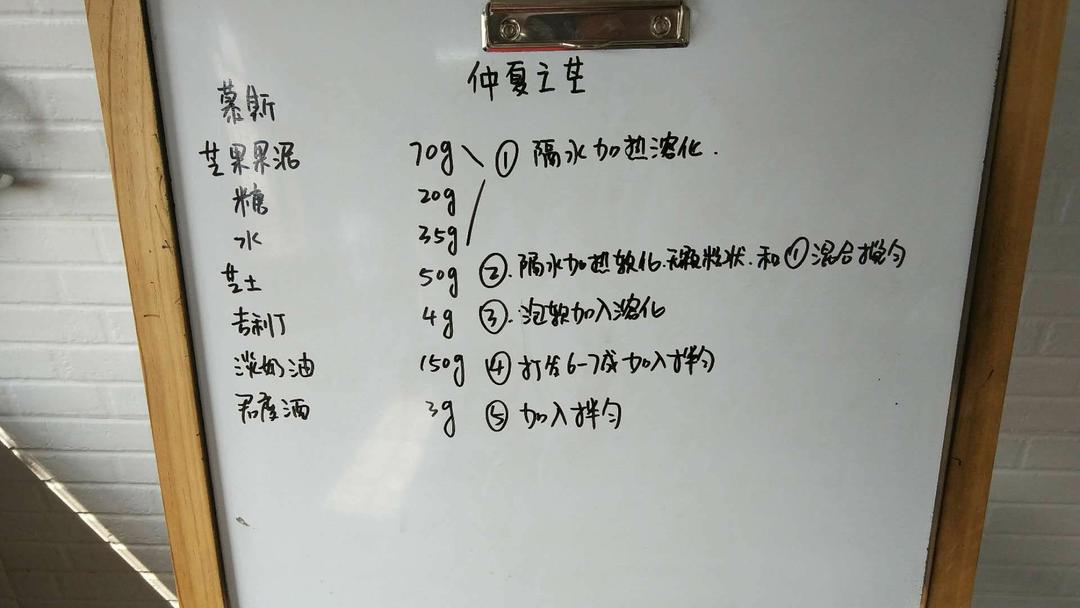 仲夏之芒
慕斯
芒果果泥 70g ① 隔水加热溶化.
糖 20g
水 35g
芝士 50g ②.隔水加热软化.无颗粒状.和①混合搅匀
吉利丁 4g ③.泡软加入溶化
淡奶油 150g ④打发6-7成加入拌匀
君度酒 3g ⑤加入拌匀